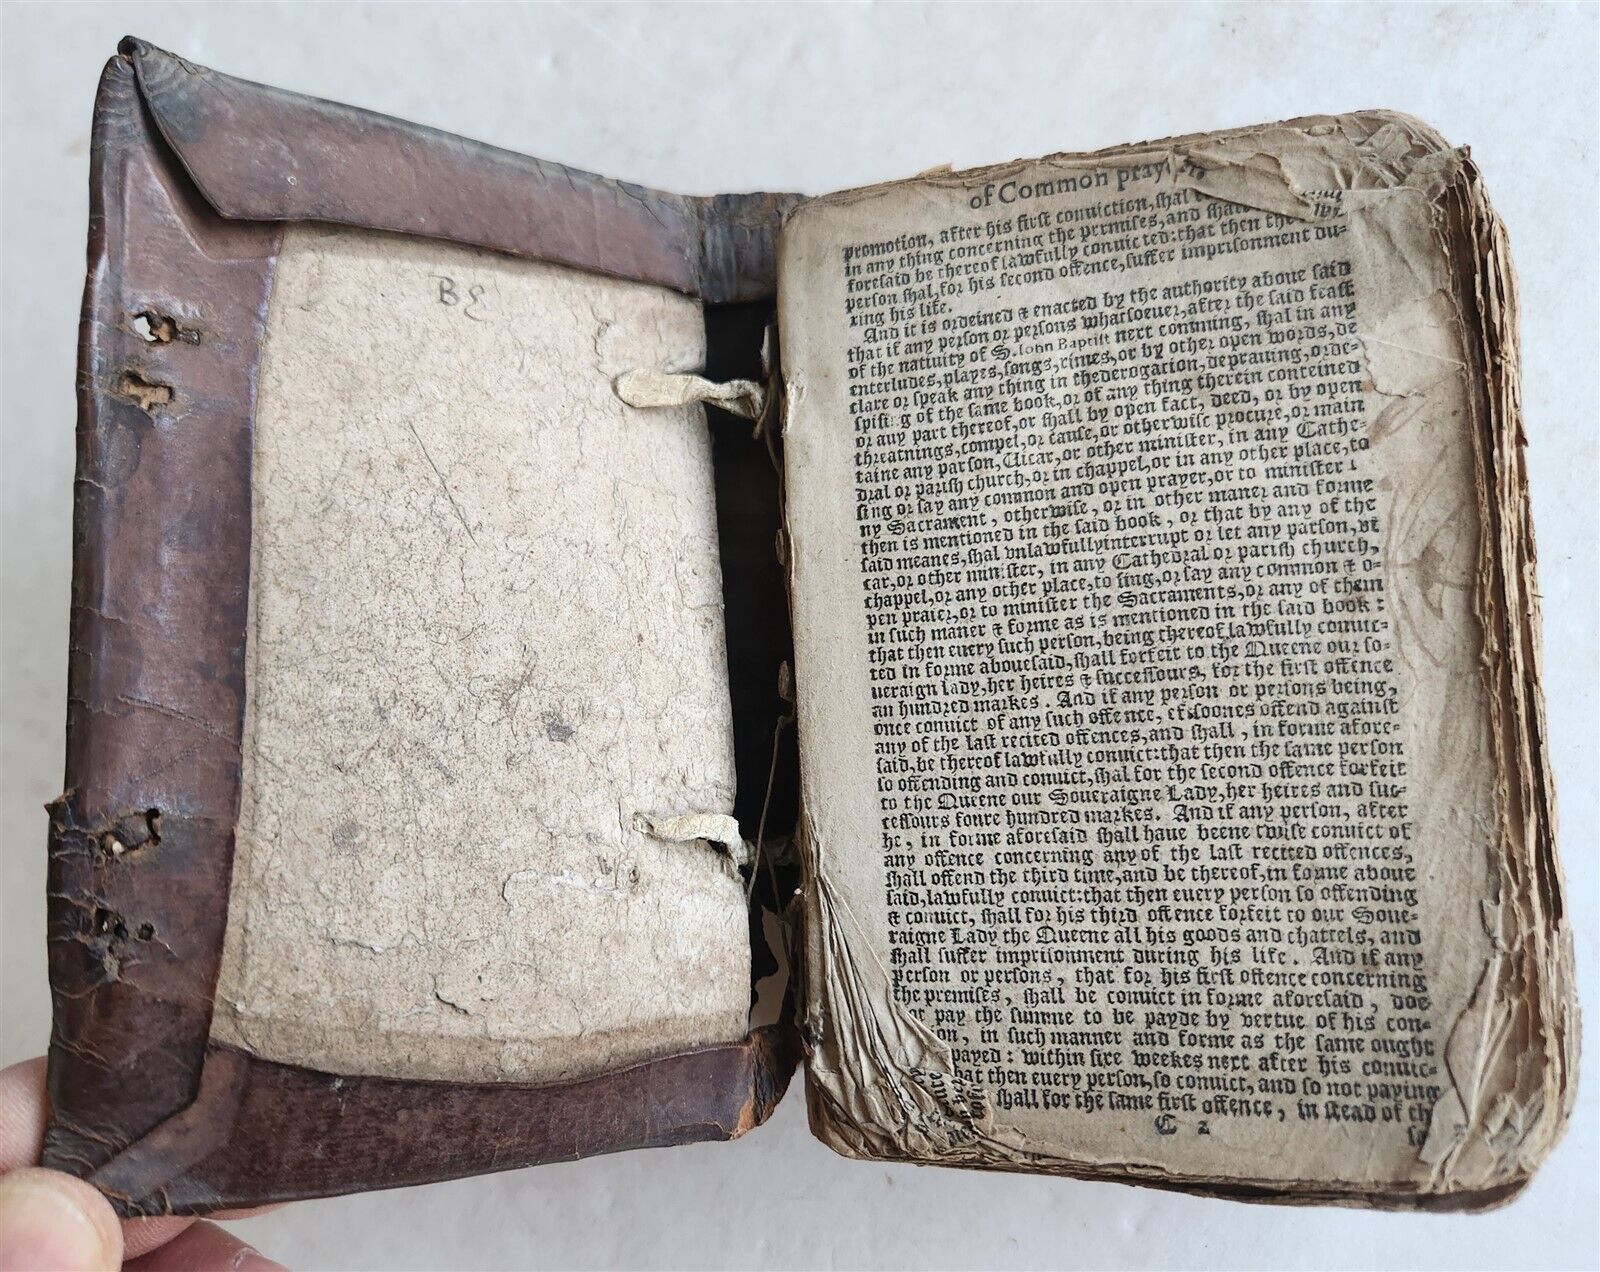 BE
of Common pray
promotion, after his first conviction, shal
in any thing concerning the premises, and shall
foresaid be thereof lawfully convicted: that then the
person shal, for his second offence, suffer imprisonment du-
ring his life.
And it is ordeined & enacted by the authority aboue said
that if any person or persons whatsoeuer, after the said feast
of the natiuity of S. Iohn Baptist next comming, shal in any
enterludes, playes, songs, rimes, or by other open words, de
clare or speak any thing in thederogation, deprauing, or de-
spising of the same book, or of any thing therein conteined
or any part thereof, or shall by open fact, deed, or by open
threatnings, compel, or cause, or otherwise procure, or main
taine any parson, Uicar, or other minister, in any Cathe-
dral or parish church, or in chappel, or in any other place, to
sing or say any common and open prayer, or to minister
ny Sacrament, otherwise, or in other maner and forme
then is mentioned in the said book, or that by any of the
said meanes, shal vnlawfullyinterrupt or let any parson, vi
car, or other minister, in any Cathedral or parish church,
chappel, or any other place, to sing, or say any common & o-
pen praier, or to minister the Sacraments, or any of them
in such maner & forme as is mentioned in the said book:
that then euery such person, being thereof lawfully conuic-
ted in forme abouesaid, shall forfeit to the Queene our so-
ueraign lady, her heires & successours, for the first offence
an hundred markes. And if any person or persons being,
once conuict of any such offence, eftsoones offend against
any of the last recited offences, and shall, in forme afore-
said, be thereof lawfully conuict: that then the same person
so offending and conuict, shal for the second offence forfeit
to the Queene our Soueraigne Lady, her heires and suc-
cessours foure hundred markes. And if any person, after
he, in forme aforesaid shall haue beene twise conuict of
any offence concerning any of the last recited offences,
shall offend the third time, and be thereof, in forme aboue
said, lawfully conuict: that then euery person so offending
& conuict, shall for his third offence forfeit to our Soue-
raigne Lady the Queene all his goods and chattels, and
shall suffer imprisonment during his life. And if any
person or persons, that for his first offence concerning
the premises, shall be conuict in forme aforesaid, doe
pay the summe to be payde by vertue of his con-
on, in such manner and forme as the same ought
payed: within sixe weekes next after his conuic-
hat then euery person, so conuict, and so not paying
shall for the same first offence, in stead of th
C 2